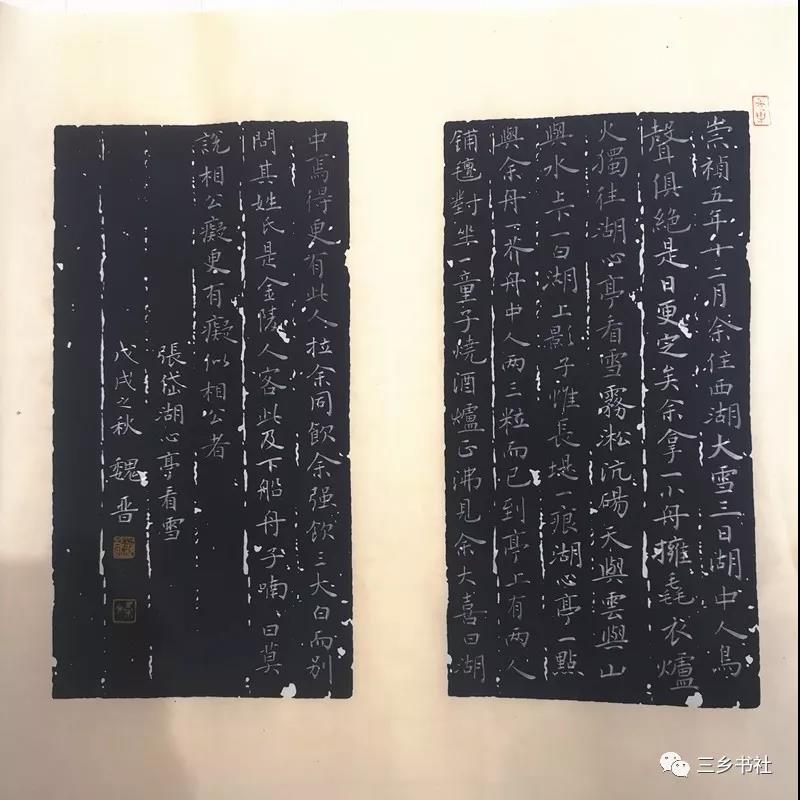 崇禎五年十二月余住西湖大雪三日湖中人鳥
聲俱絕是日更定矣余拿一小舟擁毳衣爐
火獨往湖心亭看雪霧凇沆碭天與雲與山
與水上下一白湖上影子惟長堤一痕湖心亭一點
與余舟一芥舟中人两三粒而已到亭上有两人
鋪氊對坐一童子燒酒爐正沸見余大喜曰湖
中焉得更有此人拉余同飲余强飲三大白而别
問其姓氏是金陵人客此及下船舟子喃喃曰莫
說相公癡更有癡似相公者
張岱湖心亭看雪
戊戌之秋 魏晋
三乡书社